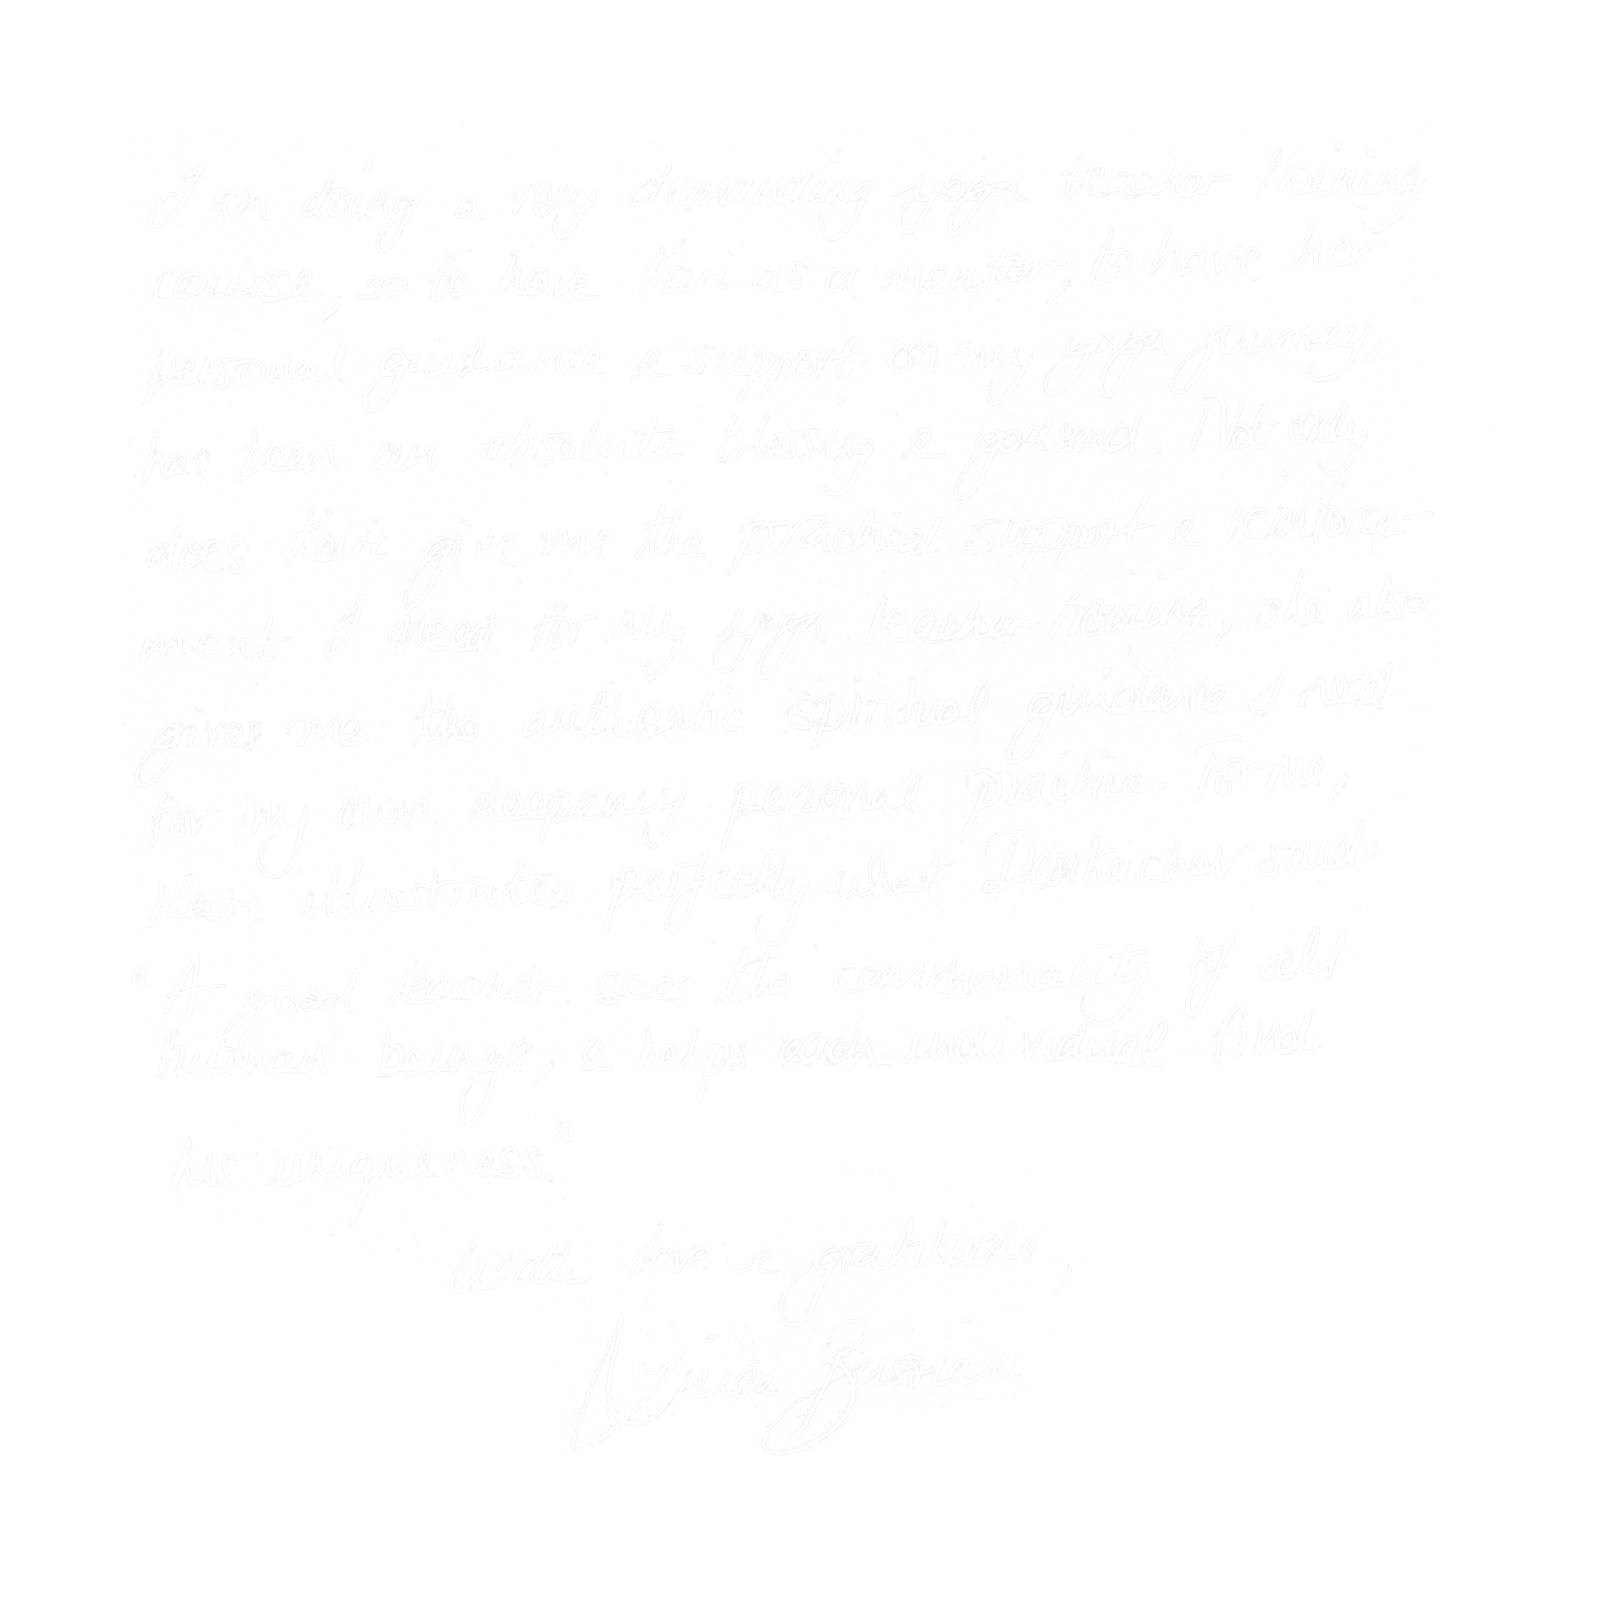 I am doing a very demanding yoga teacher training
course, so to have Kari as a mentor, to have her
personal guidance & support on my yoga journey,
has been an absolute blessing & godsend. Not only
does Kari give me the practical support & reinforce-
ment I need for my yoga teacher training, she also
gives me the authentic spiritual guidance I need
for my own deepening personal practice. For me,
Kari illustrates perfectly what Desikachar said:
"A good teacher sees the commonality of all
human beings, & helps each individual find
his uniqueness."
With love & gratitude,